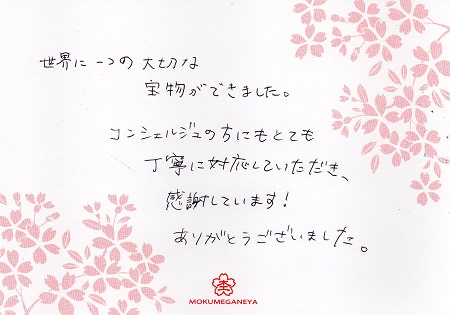 世界に一つの大切な
宝物ができました。
コンシェルジュの方にもとても
丁寧に対応していただき、
感謝しています!
ありがとうございました。
MOKUMEGANEYA